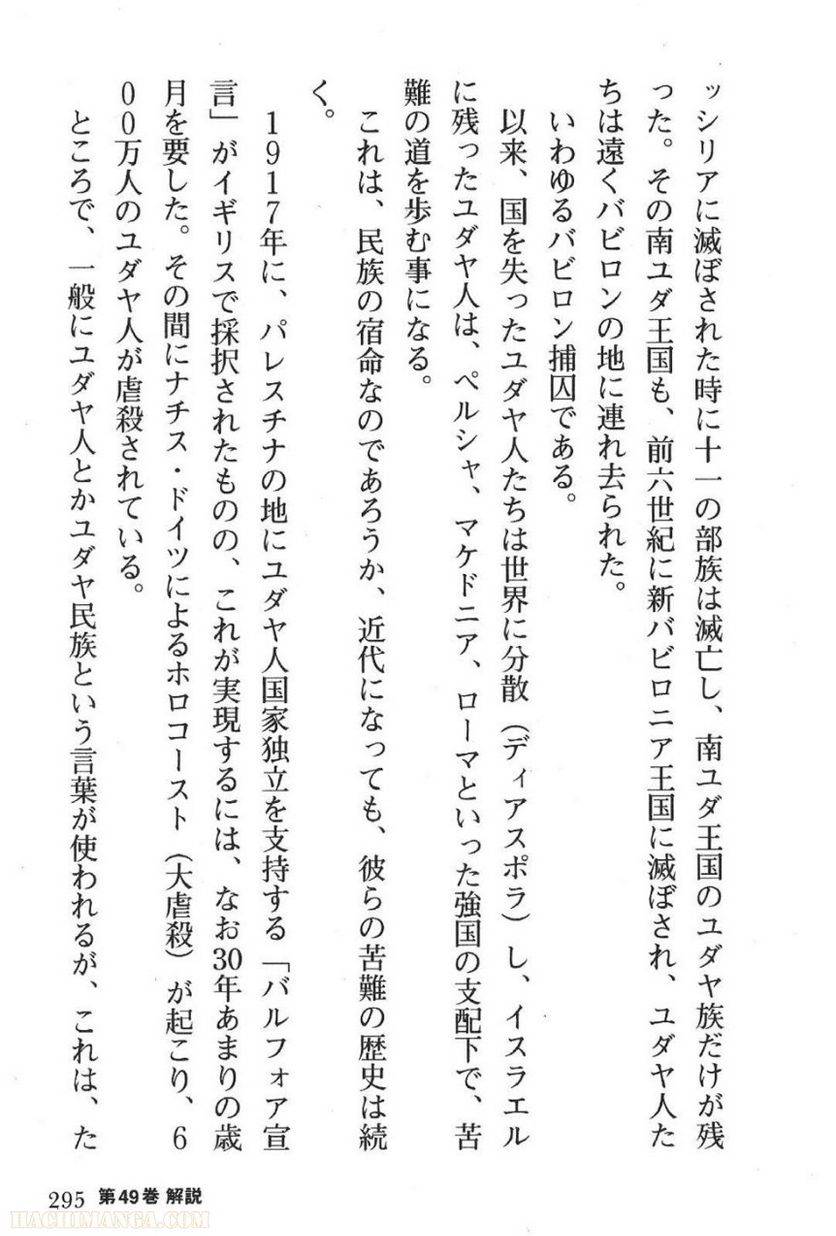 ッシリアに滅ぼされた時に十一の部族は滅亡し、南ユダ王国のユダヤ族だけが残
った。その南ユダ王国も、前六世紀に新バビロニア王国に滅ぼされ、ユダヤ人た
ちは遠くバビロンの地に連れ去られた。
いわゆるバビロン捕囚である。
以来、国を失ったユダヤ人たちは世界に分散（ディアスポラ）し、イスラエル
に残ったユダヤ人は、ペルシャ、マケドニア、ローマといった強国の支配下で、苦
難の道を歩む事になる。
これは、民族の宿命なのであろうか、近代になっても、彼らの苦難の歴史は続
く。
1917年に、パレスチナの地にユダヤ人国家独立を支持する「バルフォア宣
言」がイギリスで採択されたものの、これが実現するには、なお30年あまりの歳
月を要した。その間にナチス・ドイツによるホロコースト（大虐殺）が起こり、6
00万人のユダヤ人が虐殺されている。
ところで、一般にユダヤ人とかユダヤ民族という言葉が使われるが、これは、た
295 第49巻 解説
HACHIMANGA.COM